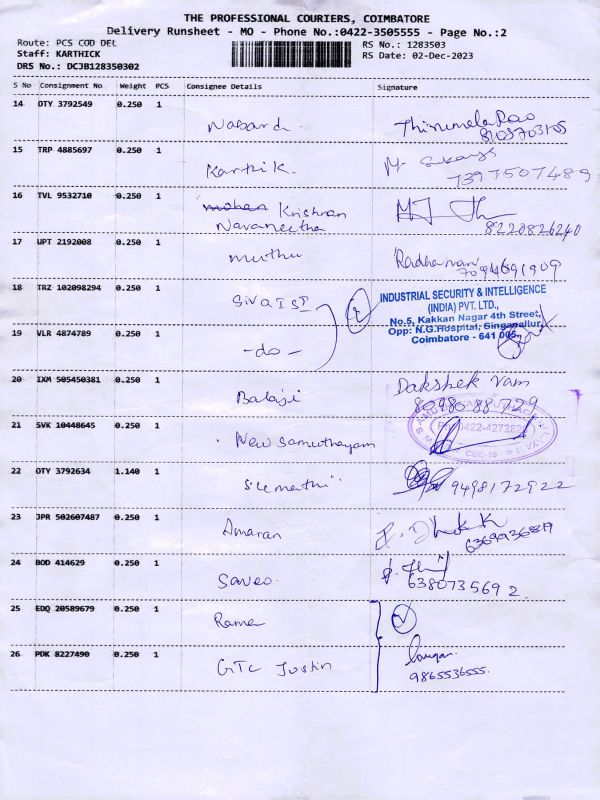 THE PROFESSIONAL COURIERS, COIMBATORE
Delivery Runsheet - MO - Phone No.:0422-3505555 - Page No.:2
Route: PCS COD DEL
RS No.: 1283503
Staff: KARTHICK
RS Date: 02-Dec-2023
DRS No.: DCJB128350302
S No Consignment No Weight PCS Consignee Details Signature
14 OTY 3792549 0.250 1 Nabard Thirumala Rao
15 TRP 4885697 0.250 1 Karthik. M.
7397507489
16 TVL 9532710 0.250 1 mohan Krishnan
Navaneetha 8220826240
17 UPT 2192008 0.250 1 muthu Radhamani
7094691909
18 TRZ 102098294 0.250 1 Siva ISI 2
INDUSTRIAL SECURITY & INTELLIGENCE
(INDIA) PVT. LTD.,
No.5, Kakkan Nagar 4th Street,
Opp: N.G.Hospital, Singanallur,
Coimbatore - 641 005.
19 VLR 4874789 0.250 1 - do -
20 IXM 505450381 0.250 1 Balaji Dakshek Vam
8098088729
21 SVK 10448645 0.250 1 New Samuthayam
Ph: 0422-427282
CBE-15
22 OTY 3792634 1.140 1 Sumathi 9498172922
23 JPR 502607487 0.250 1 Amaran
24 BOD 414629 0.250 1 Saveo.
6380735692
25 EDQ 20589679 0.250 1 Rama
26 PDK 8227490 0.250 1 GTC Justin
9865536555.